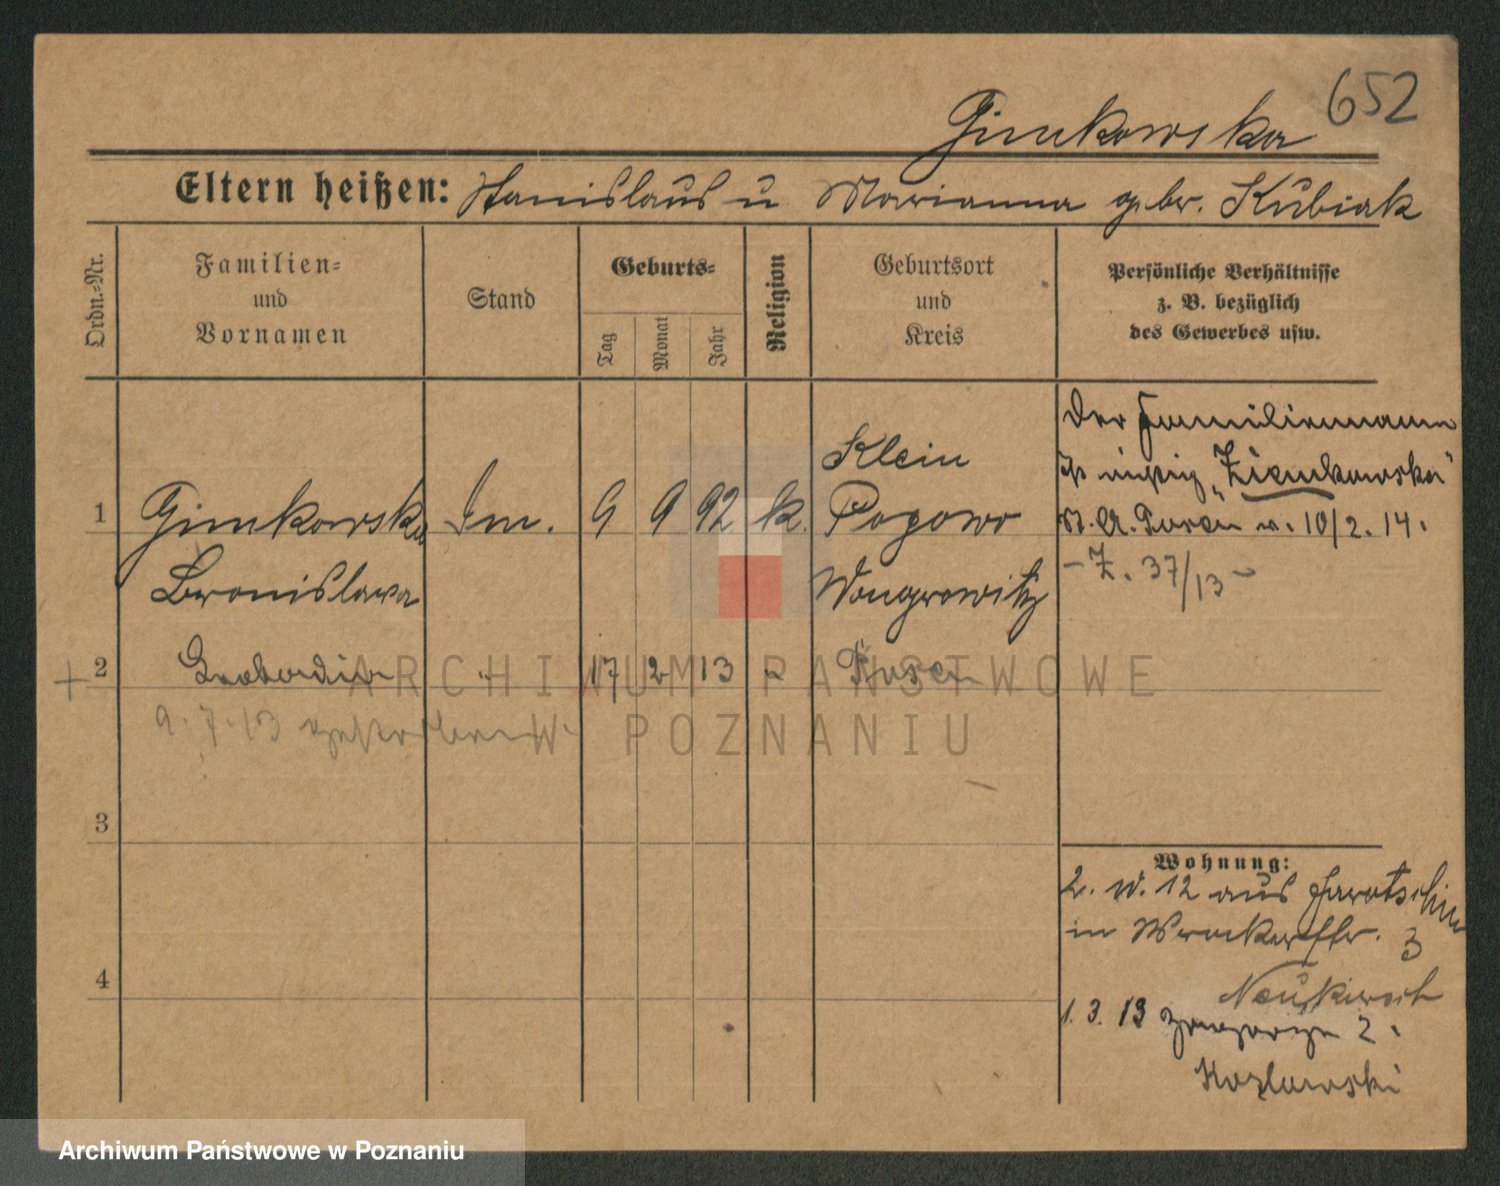 652
Gimkowska
Eltern heißen: Stanislaus u Marianna gebr. Kubiak
Ordn.-Nr.
Familien-
und
Vornamen
Stand
Geburts-
Tag
Monat
Jahr
Religion
Geburtsort
und
Kreis
Persönliche Verhältnisse
z. B. bezüglich
des Gewerbes usw.
Der Familienname
ist richtig „Zienkowska"
v. 10/2. 14.
- Z. 37/13 -
Klein
1 Gimkowska 9 9 92 k. Pogowo
Bronislawa Wongrowitz
2 17 2 13 Posen
9.7.13
3
4
Wohnung:
2. IV. 12 aus Jarotschin
in 3
Neukirch
1. 3. 13 2.
Kozlowski
ARCHIWUM PAŃSTWOWE
W POZNANIU
Archiwum Państwowe w Poznaniu